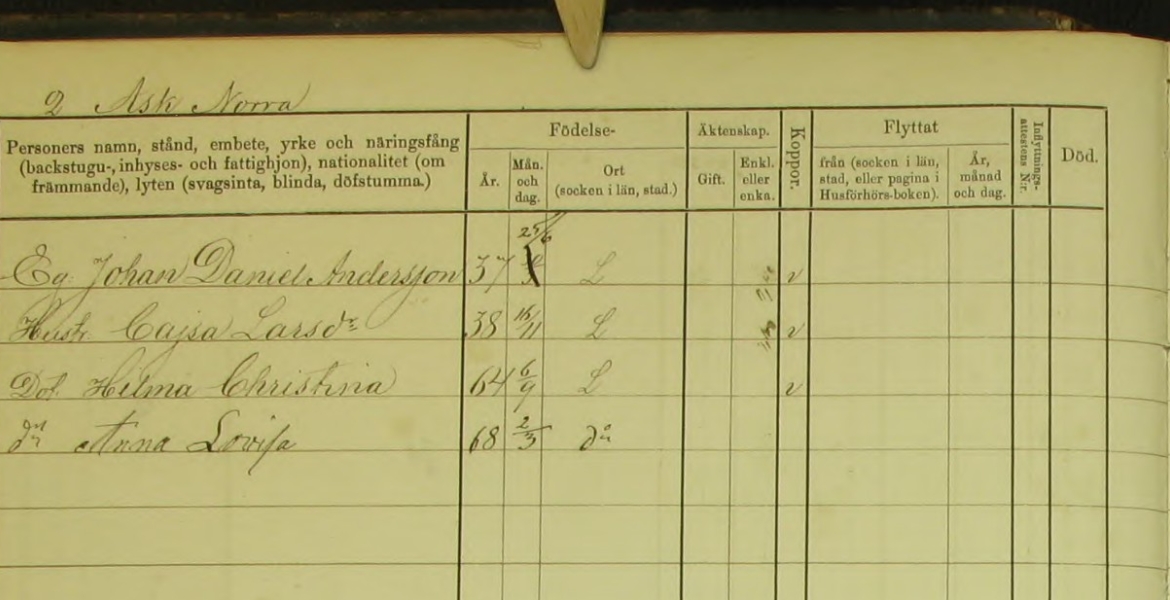 2 Ask Norra
Personers namn, stånd, embete, yrke och näringsfång
(backstugu-, inhyses- och fattighjon), nationalitet (om
främmande), lyten (svagsinta, blinda, döfstumma.)
Födelse-
År.
Mån.
och
dag.
Ort
(socken i län, stad.)
Äktenskap.
Gift.
Enkl.
eller
enka.
Koppor.
Flyttat
från (socken i län,
stad, eller pagina i
Husförhörs-boken).
År,
månad
och dag.
Inflyttnings-
attestens N:r.
Död.
25/6
Eg. Johan Daniel Andersson 37 L v
Hustr. Cajsa Larsdr 38 16/11 L v
Dot. Hilma Christina 64 6/9 L v
dn Anna Lovisa 68 2/3 do